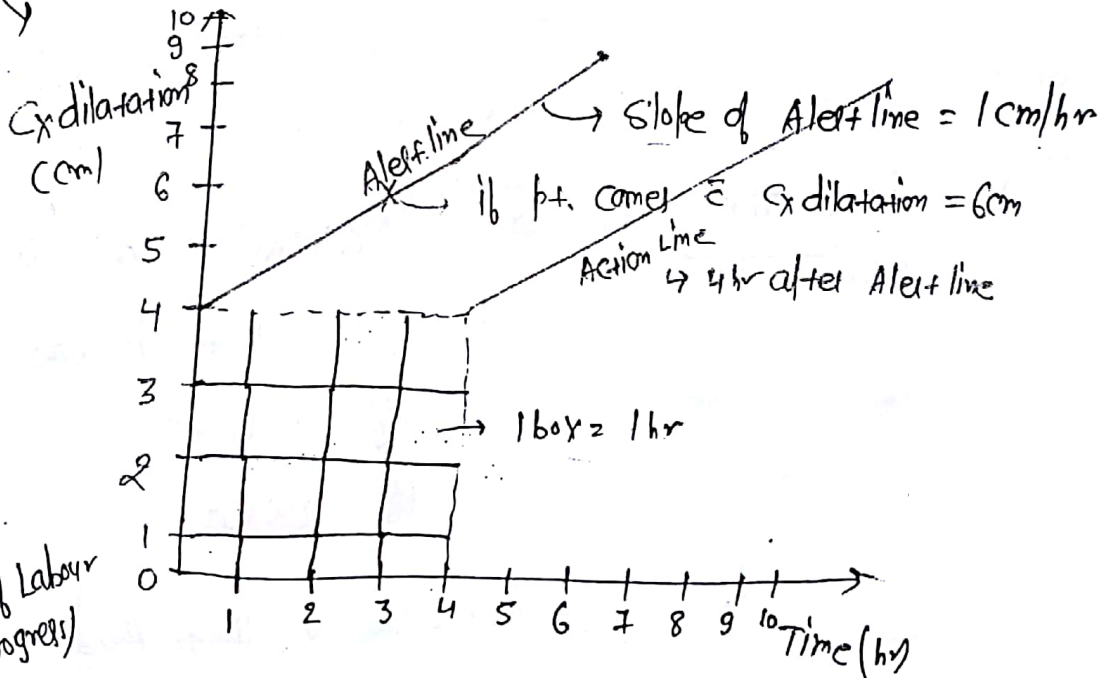 10
9
8
Cx dilatation
7
(cm)
6
5
4
3
2
1
0
Alert line
→ Slope of Alert line = 1 cm/hr
→ if pt. comes c̄ Cx dilatation = 6cm
Action Line
↳ 4 hr after Alert line
→ 1 box = 1 hr
Labour
ogress)
1 2 3 4 5 6 7 8 9 10
Time (hr)